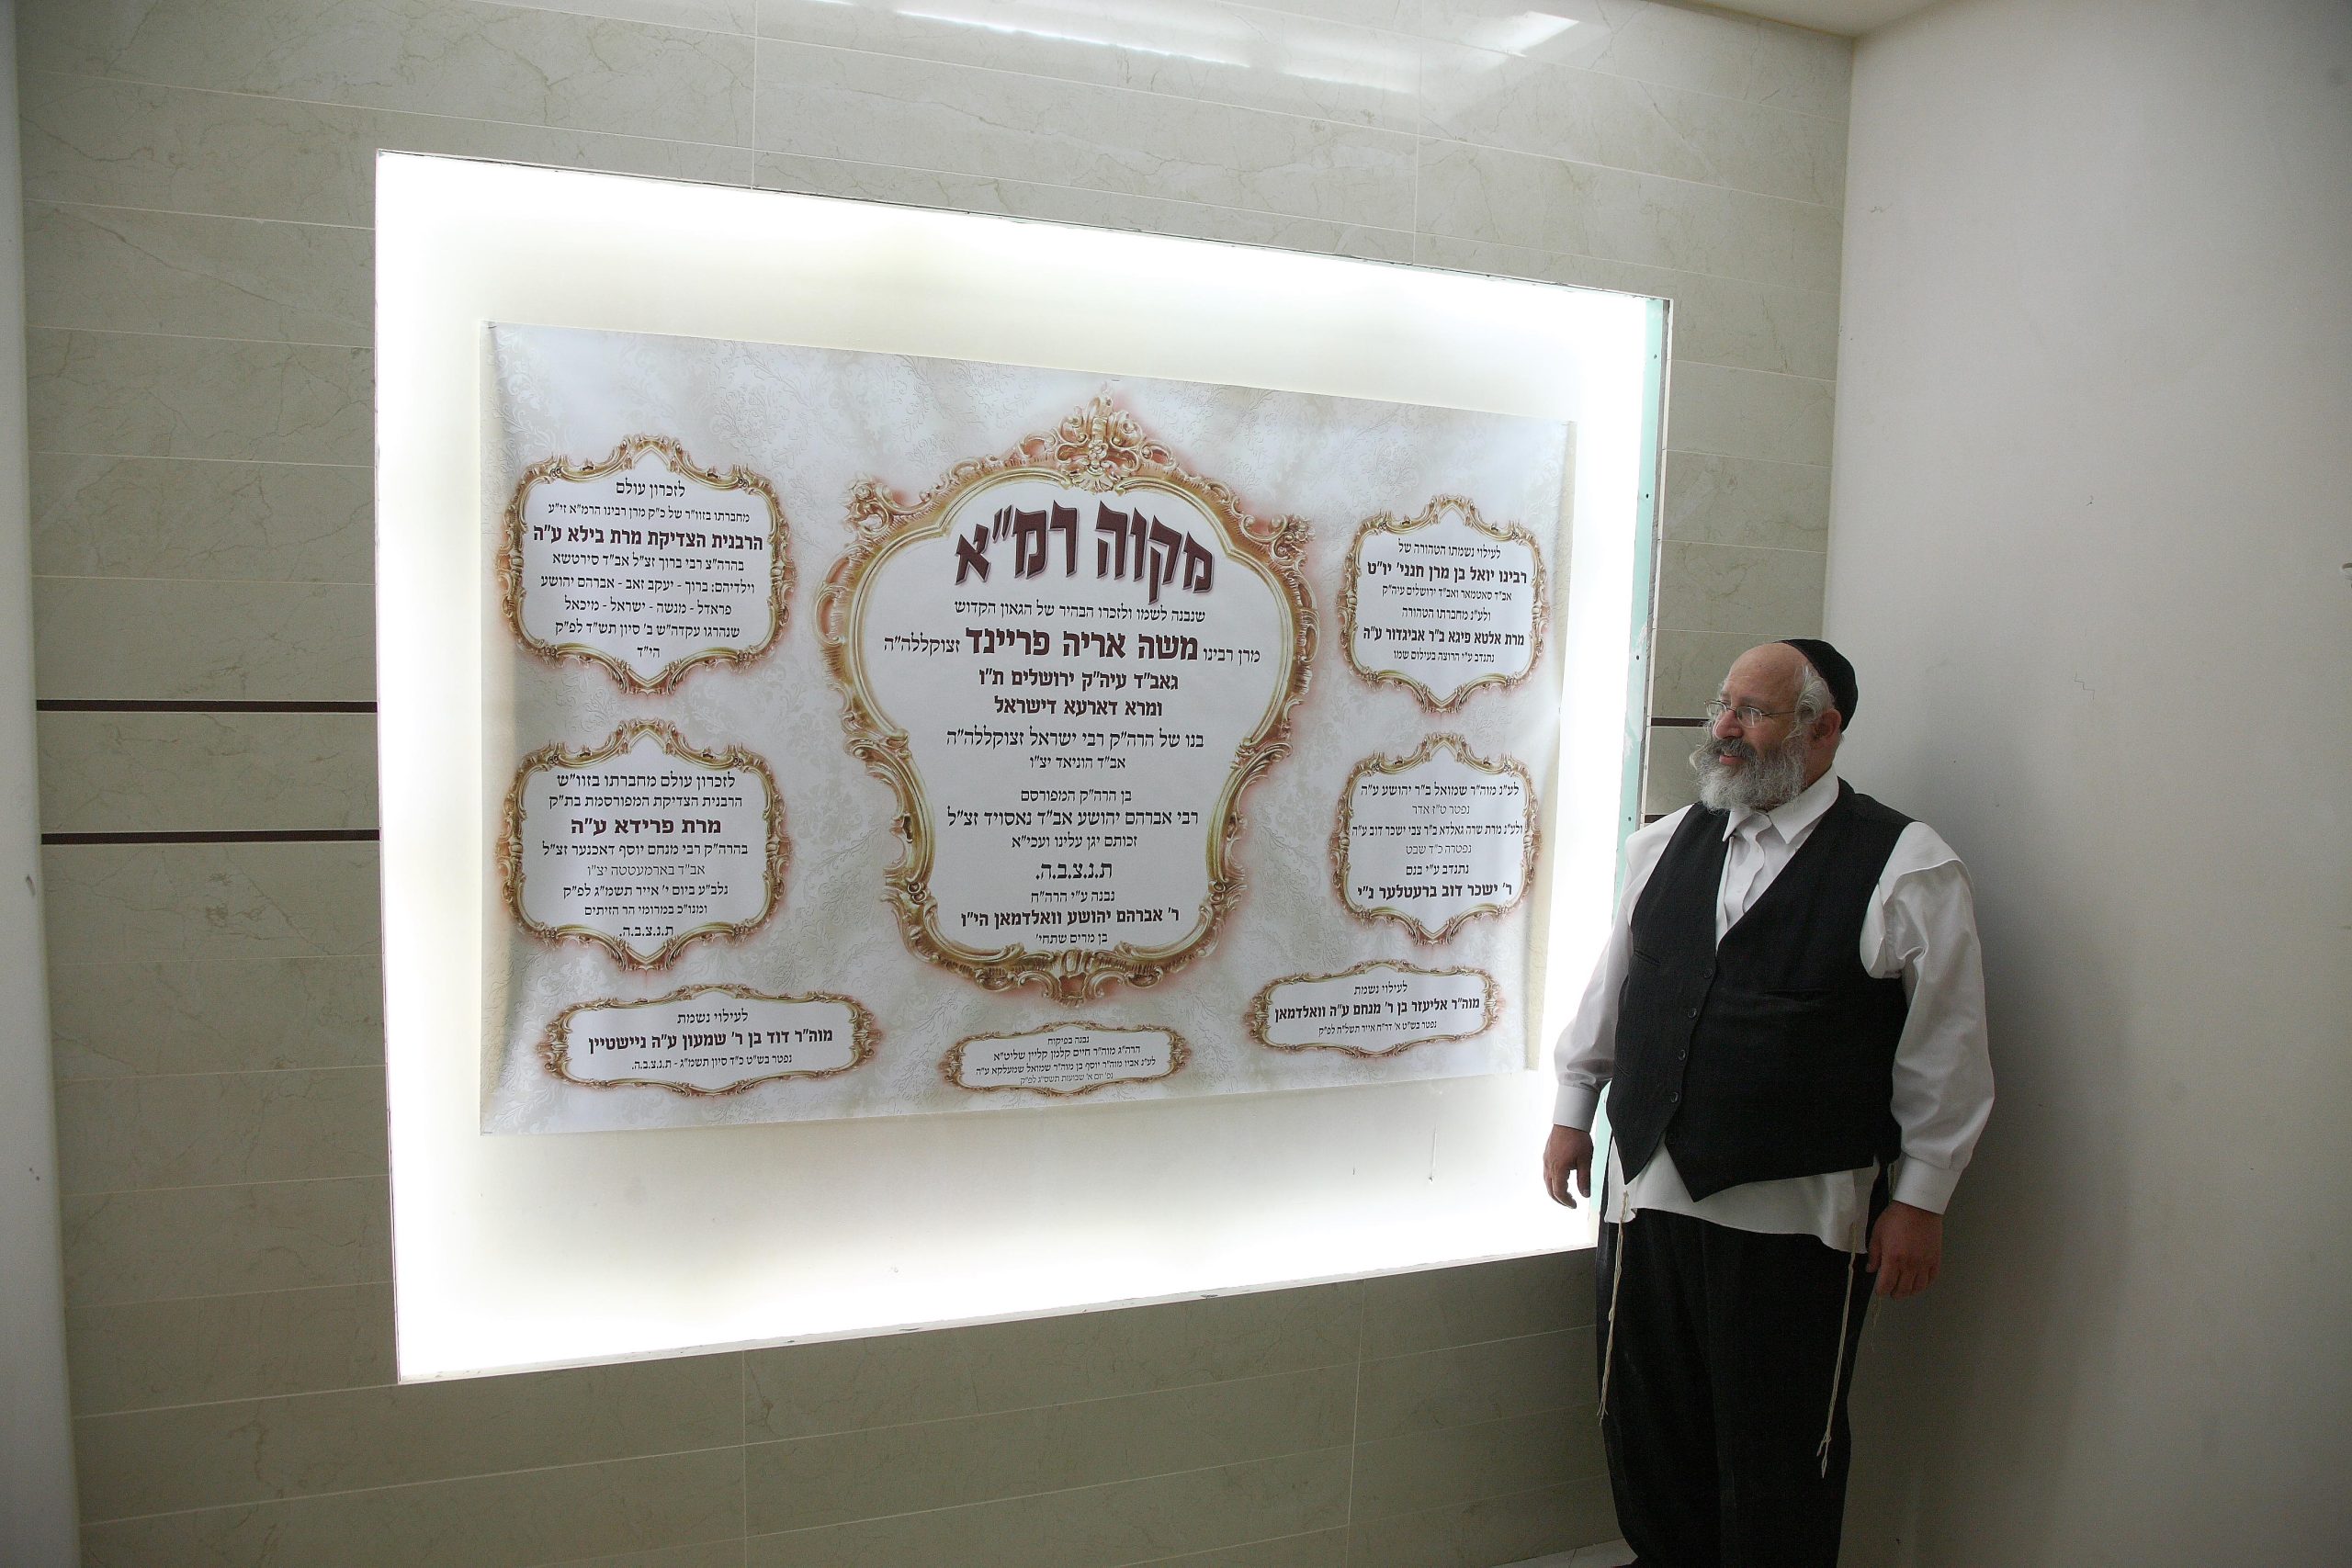 מקוה רמ"א
שנבנה לשמו ולזכרו הבהיר של הגאון הקדוש
מרן רבינו משה אריה פריינד זצוקללה"ה
גאב"ד עיה"ק ירושלים ת"ו
ומרא דארעא דישראל
בנו של הרה"ק רבי ישראל זצוקללה"ה
אב"ד הוניאד יצ"ו
בן הרה"ק המפורסם
רבי אברהם יהושע אב"ד נאסויד זצ"ל
זכותם יגן עלינו ועכי"א
ת.נ.צ.ב.ה.
נבנה ע"י הרה"ח
ר' אברהם יהושע וואלדמאן הי"ו
בן מרים שתחי'
לעילוי נשמתו הטהורה של
רבינו יואל בן מרן חנני' יו"ט
אב"ד סאטמאר ואב"ד ירושלים עיה"ק
ולע"נ מחברתו הטהורה
מרת אלטא פיגא ב"ר אביגדור ע"ה
נתנדב ע"י הרוצה בעילום שמו
לע"נ מוה"ר שמואל ב"ר יהושע ע"ה
נפטר ט"ז אדר
ולע"נ מרת שרה גאלדא ב"ר צבי ישכר דוב ע"ה
נפטרה כ"ד שבט
נתנדב ע"י בנם
ר' ישכר דוב ברעטלער נ"י
לעילוי נשמת
מוה"ר אליעזר בן ר' מנחם ע"ה וואלדמאן
נפטר בש"ט א' דר"ח אייר תשל"ח לפ"ק
לזכרון עולם
מחברתו בזוו"ר של כ"ק מרן רבינו הרמ"א זי"ע
הרבנית הצדיקת מרת בילא ע"ה
בהרה"צ רבי ברוך זצ"ל אב"ד סירטשא
וילדיהם: ברוך - יעקב זאב - אברהם יהושע
פראדל - מנשה - ישראל - מיכאל
שנהרגו עקדה"ש ב' סיון תש"ד לפ"ק
הי"ד
לזכרון עולם מחברתו בזוו"ש
הרבנית הצדיקת המפורסמת בת"ק
מרת פרידא ע"ה
בהרה"ק רבי מנחם יוסף דאכנער זצ"ל
אב"ד בארמעטטה יצ"ו
נלב"ע ביום י' אייר תשמ"ג לפ"ק
ומנו"כ במרומי הר הזיתים
ת.נ.צ.ב.ה.
לעילוי נשמת
מוה"ר דוד בן ר' שמעון ע"ה ניישטיין
נפטר בש"ט כ"ד סיון תשמ"ג - ת.נ.צ.ב.ה.
נבנה בפיקוח
הרה"ג מוה"ר חיים קלמן קליין שליט"א
לע"נ אביו מוה"ר יוסף בן מוה"ר שמואל שמעלקא ע"ה
נפ' יום א' שבועות תשס"ג לפ"ק